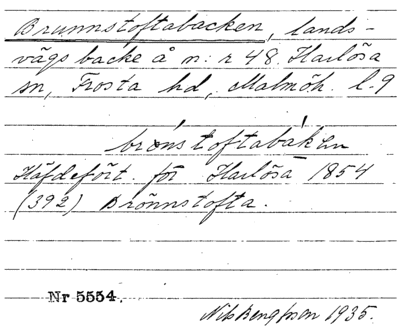 Brunnstoftabacken, lands-
vägs backe å n: r 48 Harlösa
sn, Frosta hd, Malmöh. l. 9
brónstoftabákan
Häfdefört. för Harlösa 1854
(392) Brönnstofta.
Nr 5554.
Nils Bengtsson 1935.